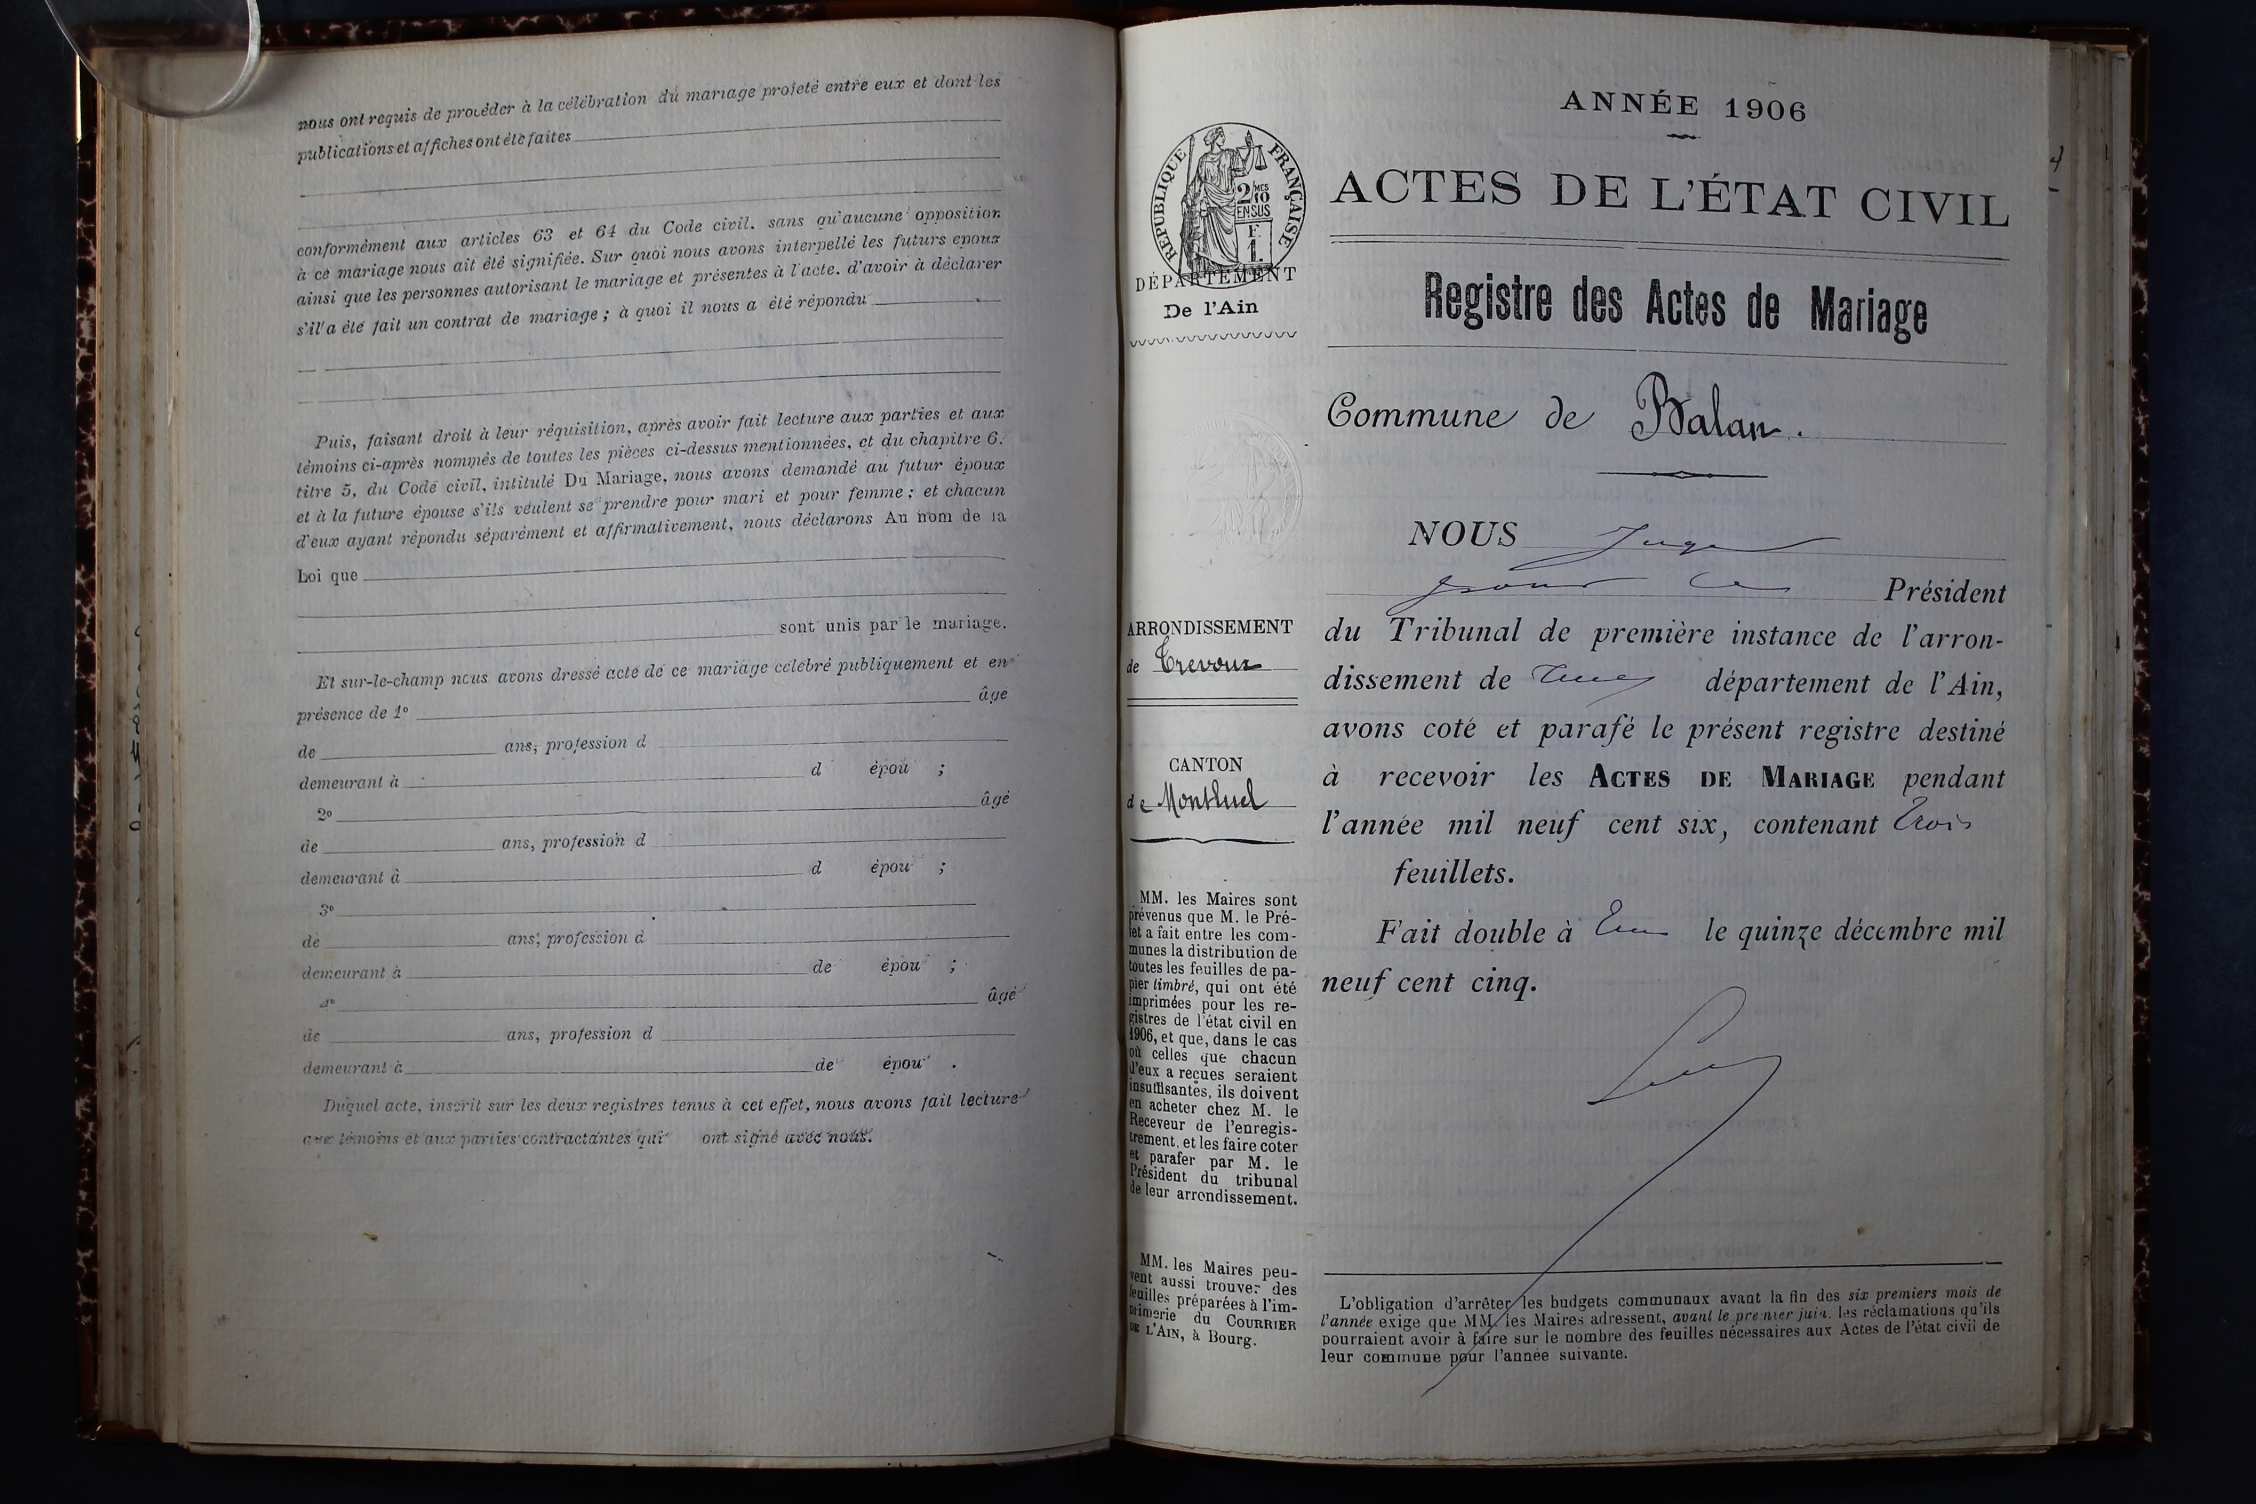 nous ont requis de procéder à la célébration du mariage projeté entre eux et dont les
publications et affiches ont été faites
conformément aux articles 63 et 64 du Code civil, sans qu'aucune opposition
à ce mariage nous ait été signifiée. Sur quoi nous avons interpellé les futurs époux
ainsi que les personnes autorisant le mariage et présentes à l'acte, d'avoir à déclarer
s'il a été fait un contrat de mariage ; à quoi il nous a été répondu
Puis, faisant droit à leur réquisition, après avoir fait lecture aux parties et aux
témoins ci-après nommés de toutes les pièces ci-dessus mentionnées, et du chapitre 6,
titre 5, du Code civil, intitulé Du Mariage, nous avons demandé au futur époux
et à la future épouse s'ils veulent se prendre pour mari et pour femme ; et chacun
d'eux ayant répondu séparément et affirmativement, nous déclarons Au nom de la
Loi que
sont unis par le mariage.
Et sur-le-champ nous avons dressé acte de ce mariage célébré publiquement et en
présence de 1º âgé
de ans, profession d
demeurant à d épou ;
2º âgé
de ans, profession d
demeurant à d épou ;
3º
de ans, profession d
demeurant à de épou ;
4º âgé
de ans, profession d
demeurant à de épou .
Duquel acte, inscrit sur les deux registres tenus à cet effet, nous avons fait lecture
aux témoins et aux parties contractantes qui ont signé avec nous.
ANNÉE 1906
RÉPUBLIQUE FRANÇAISE
2/10 MES
EN SUS
F.
1.
DÉPARTEMENT
De l'Ain
ACTES DE L'ÉTAT CIVIL
Registre des Actes de Mariage
Commune de Balan.
NOUS Juge
pour le Président
du Tribunal de première instance de l'arron-
dissement de département de l'Ain,
avons coté et parafé le présent registre destiné
à recevoir les ACTES DE MARIAGE pendant
l'année mil neuf cent six, contenant Trois
feuillets.
Fait double à le quinze décembre mil
neuf cent cinq.
ARRONDISSEMENT
de Trevoux
CANTON
de Montluel
MM. les Maires sont
prévenus que M. le Pré-
fet a fait entre les com-
munes la distribution de
toutes les feuilles de pa-
pier timbré, qui ont été
imprimées pour les re-
gistres de l'état civil en
1906, et que, dans le cas
où celles que chacun
d'eux a reçues seraient
insuffisantes, ils doivent
en acheter chez M. le
Receveur de l'enregis-
trement, et les faire coter
et parafer par M. le
Président du tribunal
de leur arrondissement.
MM. les Maires peu-
vent aussi trouver des
feuilles préparées à l'im-
primerie du COURRIER
DE L'AIN, à Bourg.
L'obligation d'arrêter les budgets communaux avant la fin des six premiers mois de
l'année exige que MM. les Maires adressent, avant le premier juin, les réclamations qu'ils
pourraient avoir à faire sur le nombre des feuilles nécessaires aux Actes de l'état civil de
leur commune pour l'année suivante.